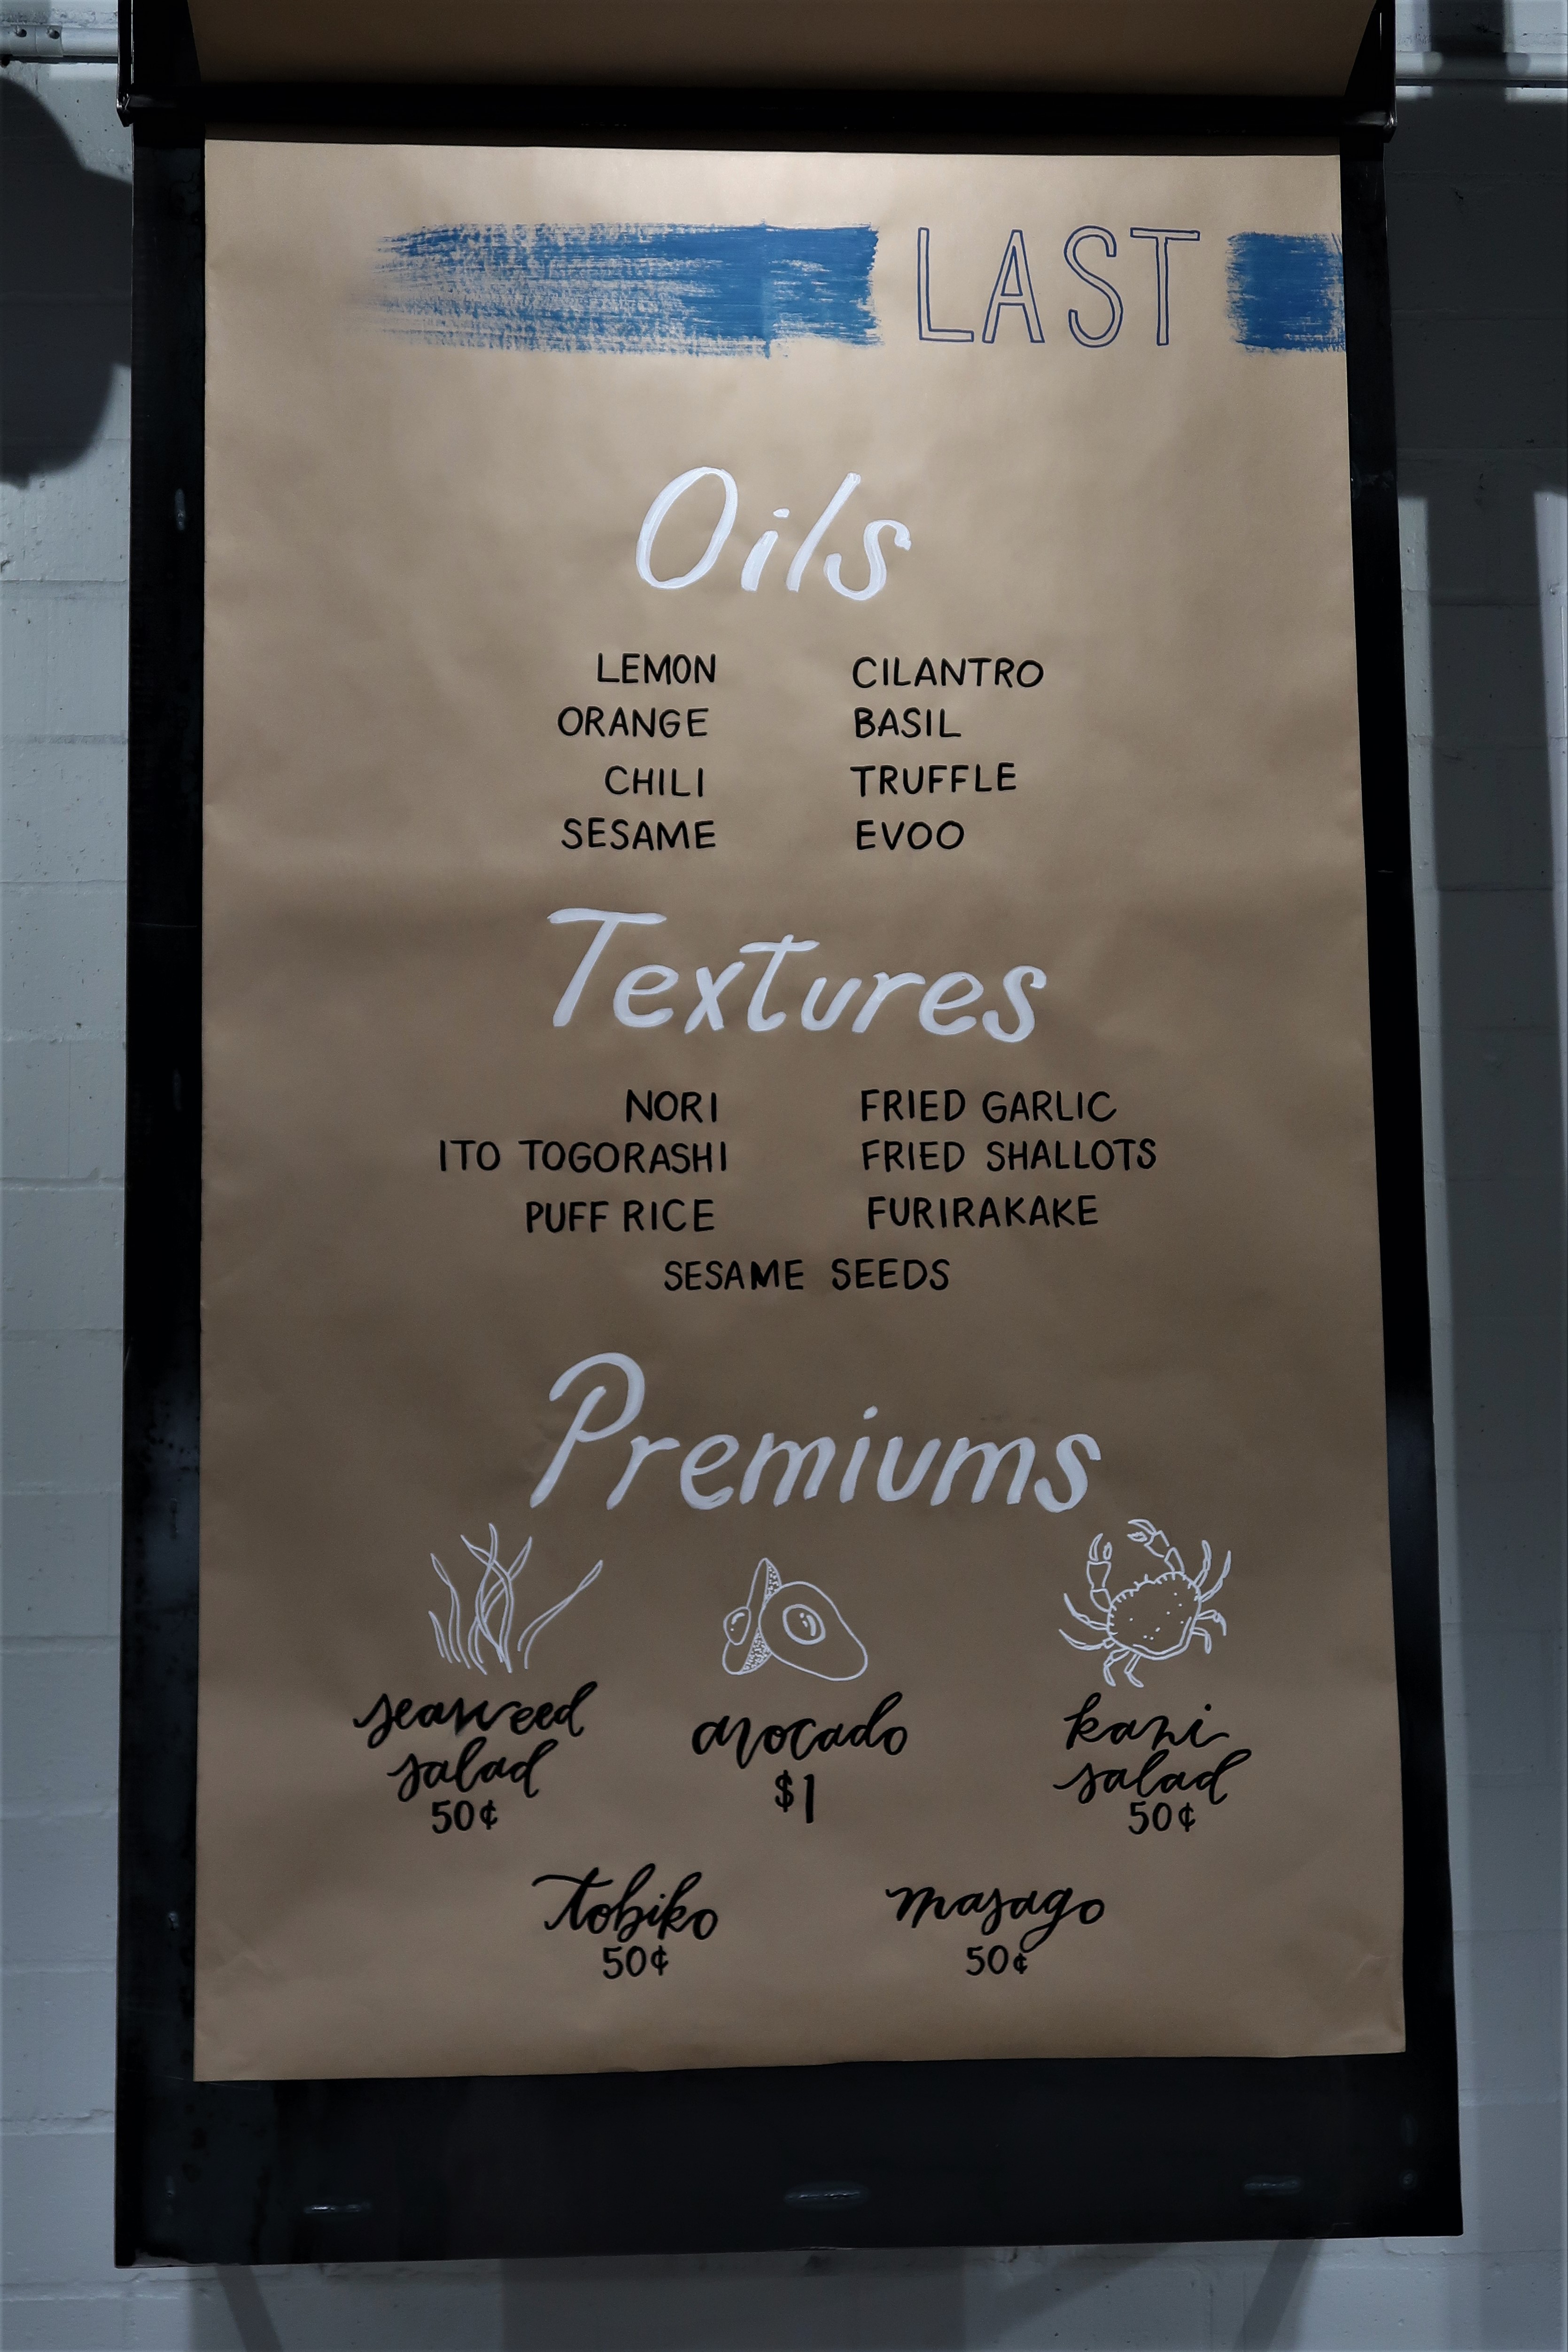 LAST
Oils
LEMON CILANTRO
ORANGE BASIL
CHILI TRUFFLE
SESAME EVOO
Textures
NORI FRIED GARLIC
ITO TOGORASHI FRIED SHALLOTS
PUFF RICE FURIRAKAKE
SESAME SEEDS
Premiums
seaweed avocado kani
salad $1 salad
50¢ 50¢
tobiko masago
50¢ 50¢